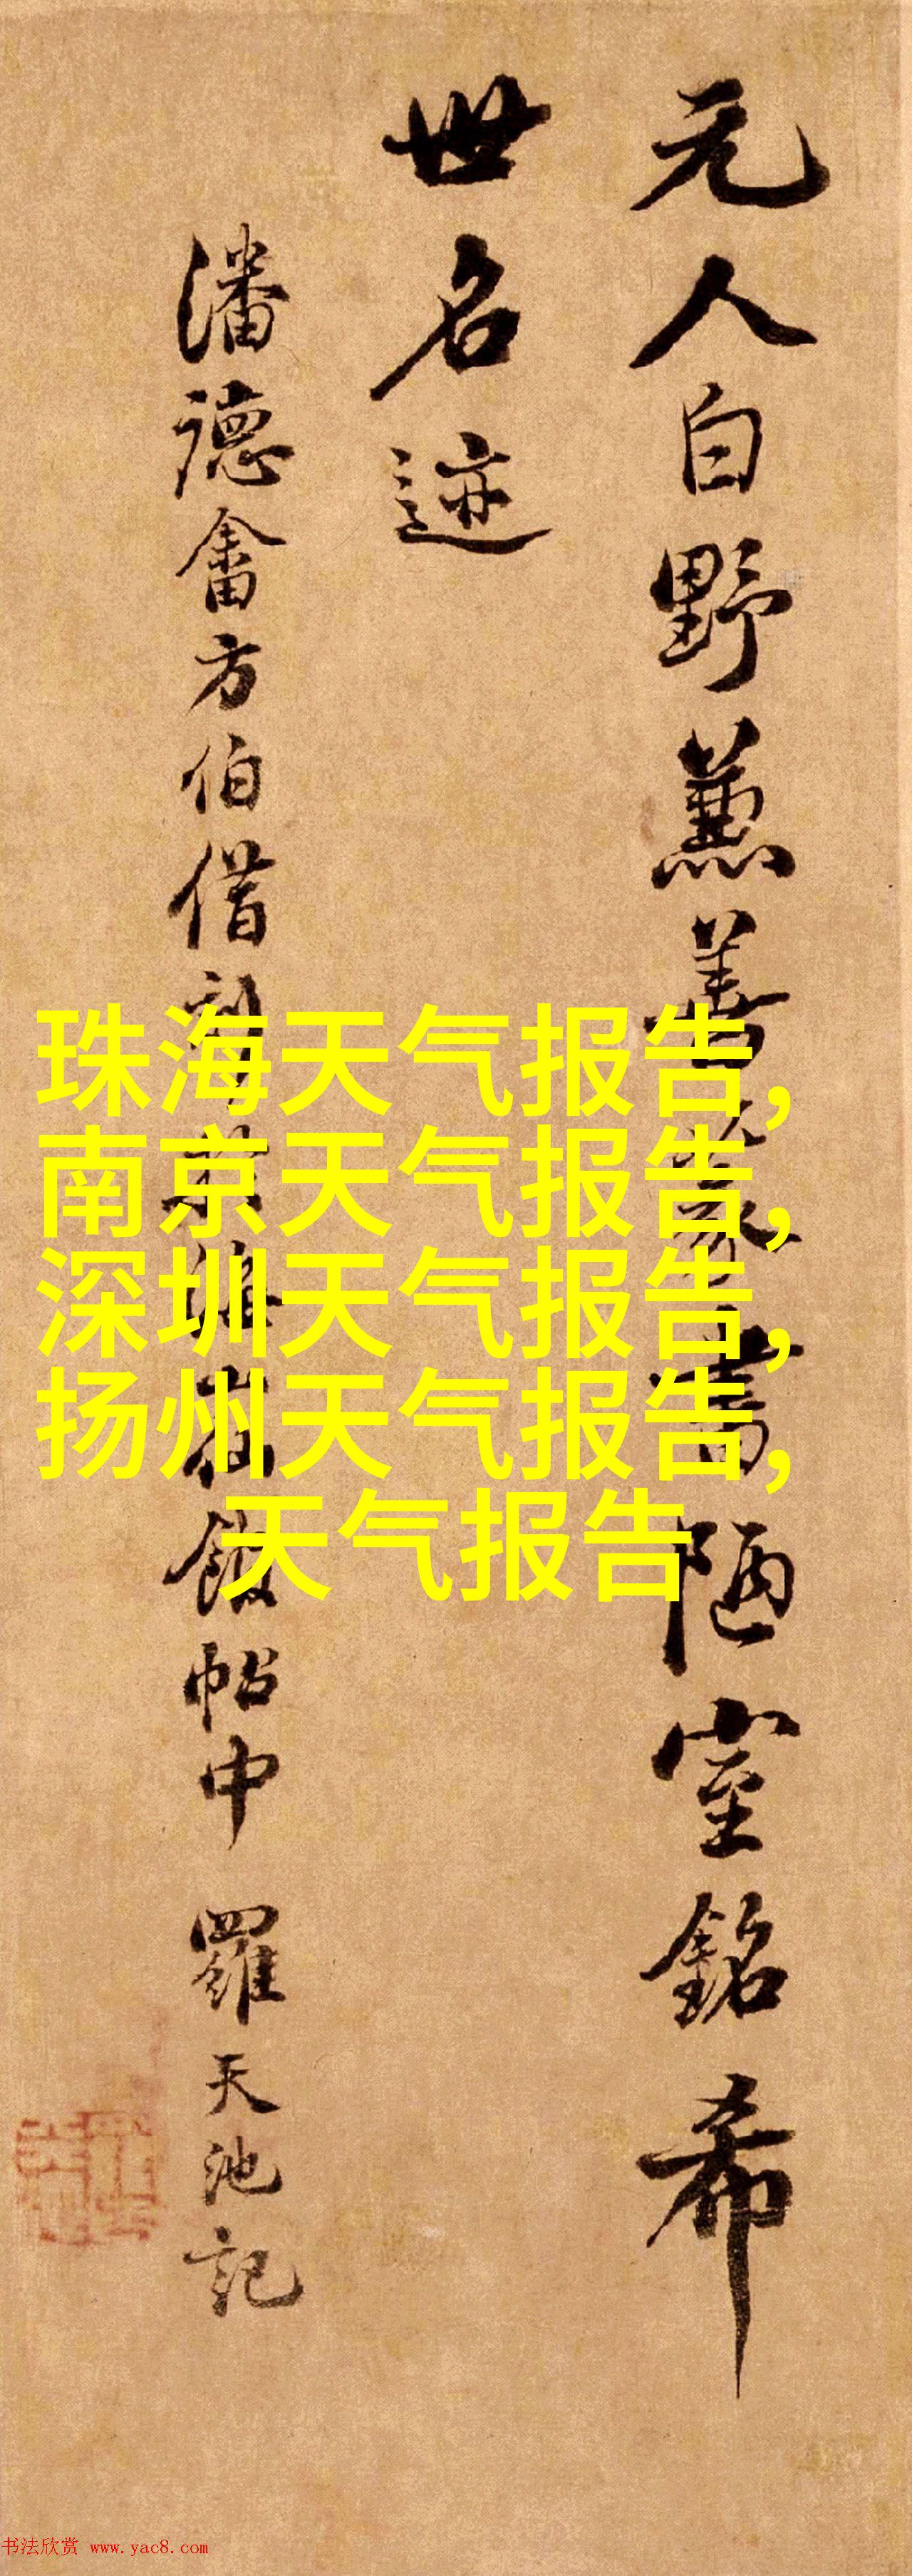 元人白野薰善篆書陋室銘希
世名迹
潘德畬方伯借刻於海山仙館帖中 羅天池記
珠海天气报告,
南京天气报告,
深圳天气报告,
扬州天气报告,
天气报告
书法欣赏 www.yac8.com